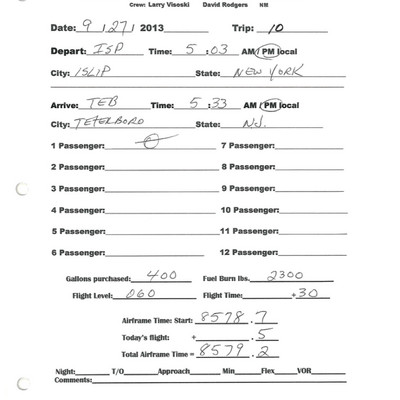 Crew: Larry Visoski David Rodgers NM
Date: 9/27/2013 Trip: 10
Depart: ISP Time: 5:03 AM/PM local
City: ISLIP State: NEW YORK
Arrive: TEB Time: 5:33 AM/PM local
City: TETERBORO State: NJ.
1 Passenger: 0 7 Passenger:
2 Passenger: 8 Passenger:
3 Passenger: 9 Passenger:
4 Passenger: 10 Passenger:
5 Passenger: 11 Passenger:
6 Passenger: 12 Passenger:
Gallons purchased: 400 Fuel Burn lbs. 2300
Flight Level: 060 Flight Time: +30
Airframe Time: Start: 8578.7
Today's flight: + .5
Total Airframe Time = 8579.2
Night: T/O Approach Min Flex VOR
Comments: